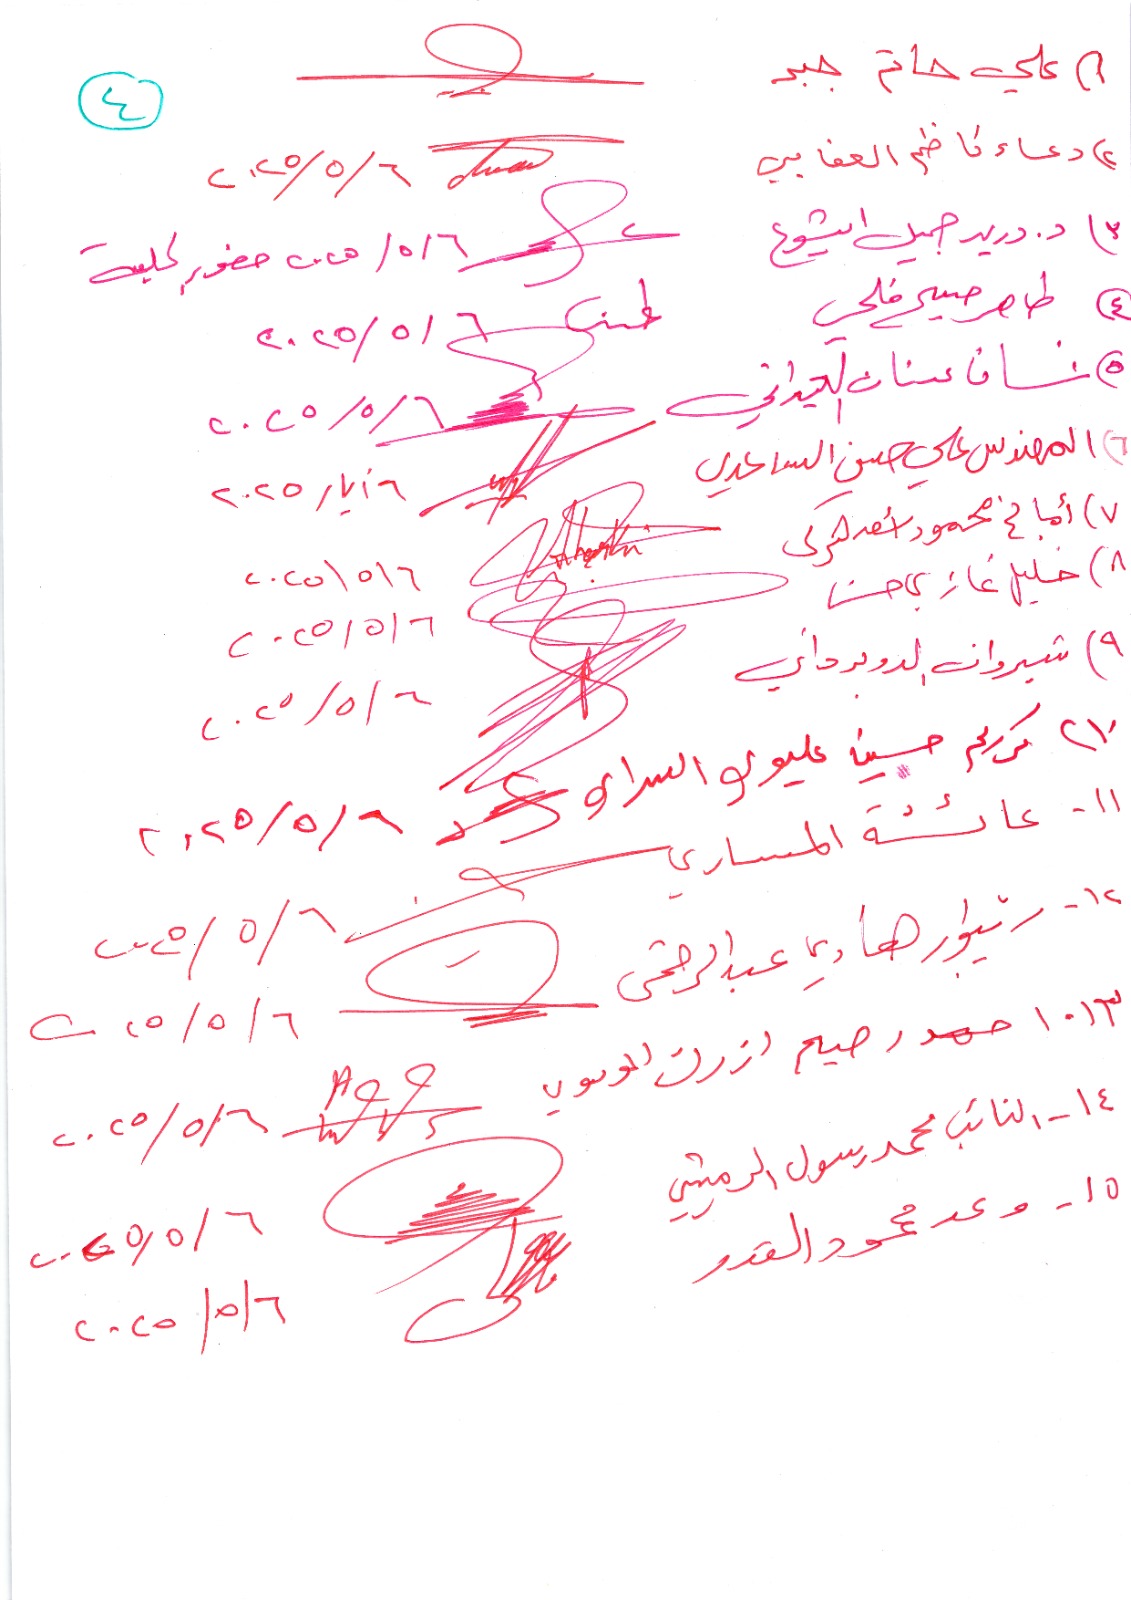 ٤
١) علي حاتم جبر
٢) دعاء كاظم ٢٠٢٥/٥/٦
٣) د. دريد جميل ايشوع ٢٠٢٥/٥/٦ حضور
٤) طاهر ٢٠٢٥/٥/٦
٥) عدنان العيداني ٢٠٢٥/٥/٦
٦) المهندس علي حسن الساعدي ٦ ايار ٢٠٢٥
٧) محمود ٢٠٢٥/٥/٦
٨) خليل غازي ٢٠٢٥/٥/٦
٩) شيروان الدوبرداني ٢٠٢٥/٥/٦
١٠) كريم حسين عليوي السراي ٢٠٢٥/٥/٦
١١- عائشة المساري ٢٠٢٥/٥/٦
١٢- هادي عبدالرحمن ٢٠٢٥/٥/٦
١٣- رحيم ازرق الموسوي ٢٠٢٥/٥/٦
١٤- النائب محمد رسول ٢٠٢٥/٥/٦
١٥- وعد محمود القدو ٢٠٢٥/٥/٦